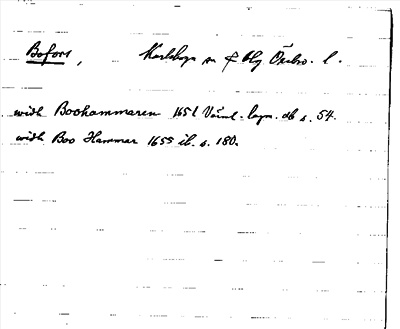 Bofors, Karlskoga sn & blg Örebro. l.
widh Boohammaren 1651 Värml. lagm. db s. 54.
widh Boo Hammar 1655 ib. s. 180.